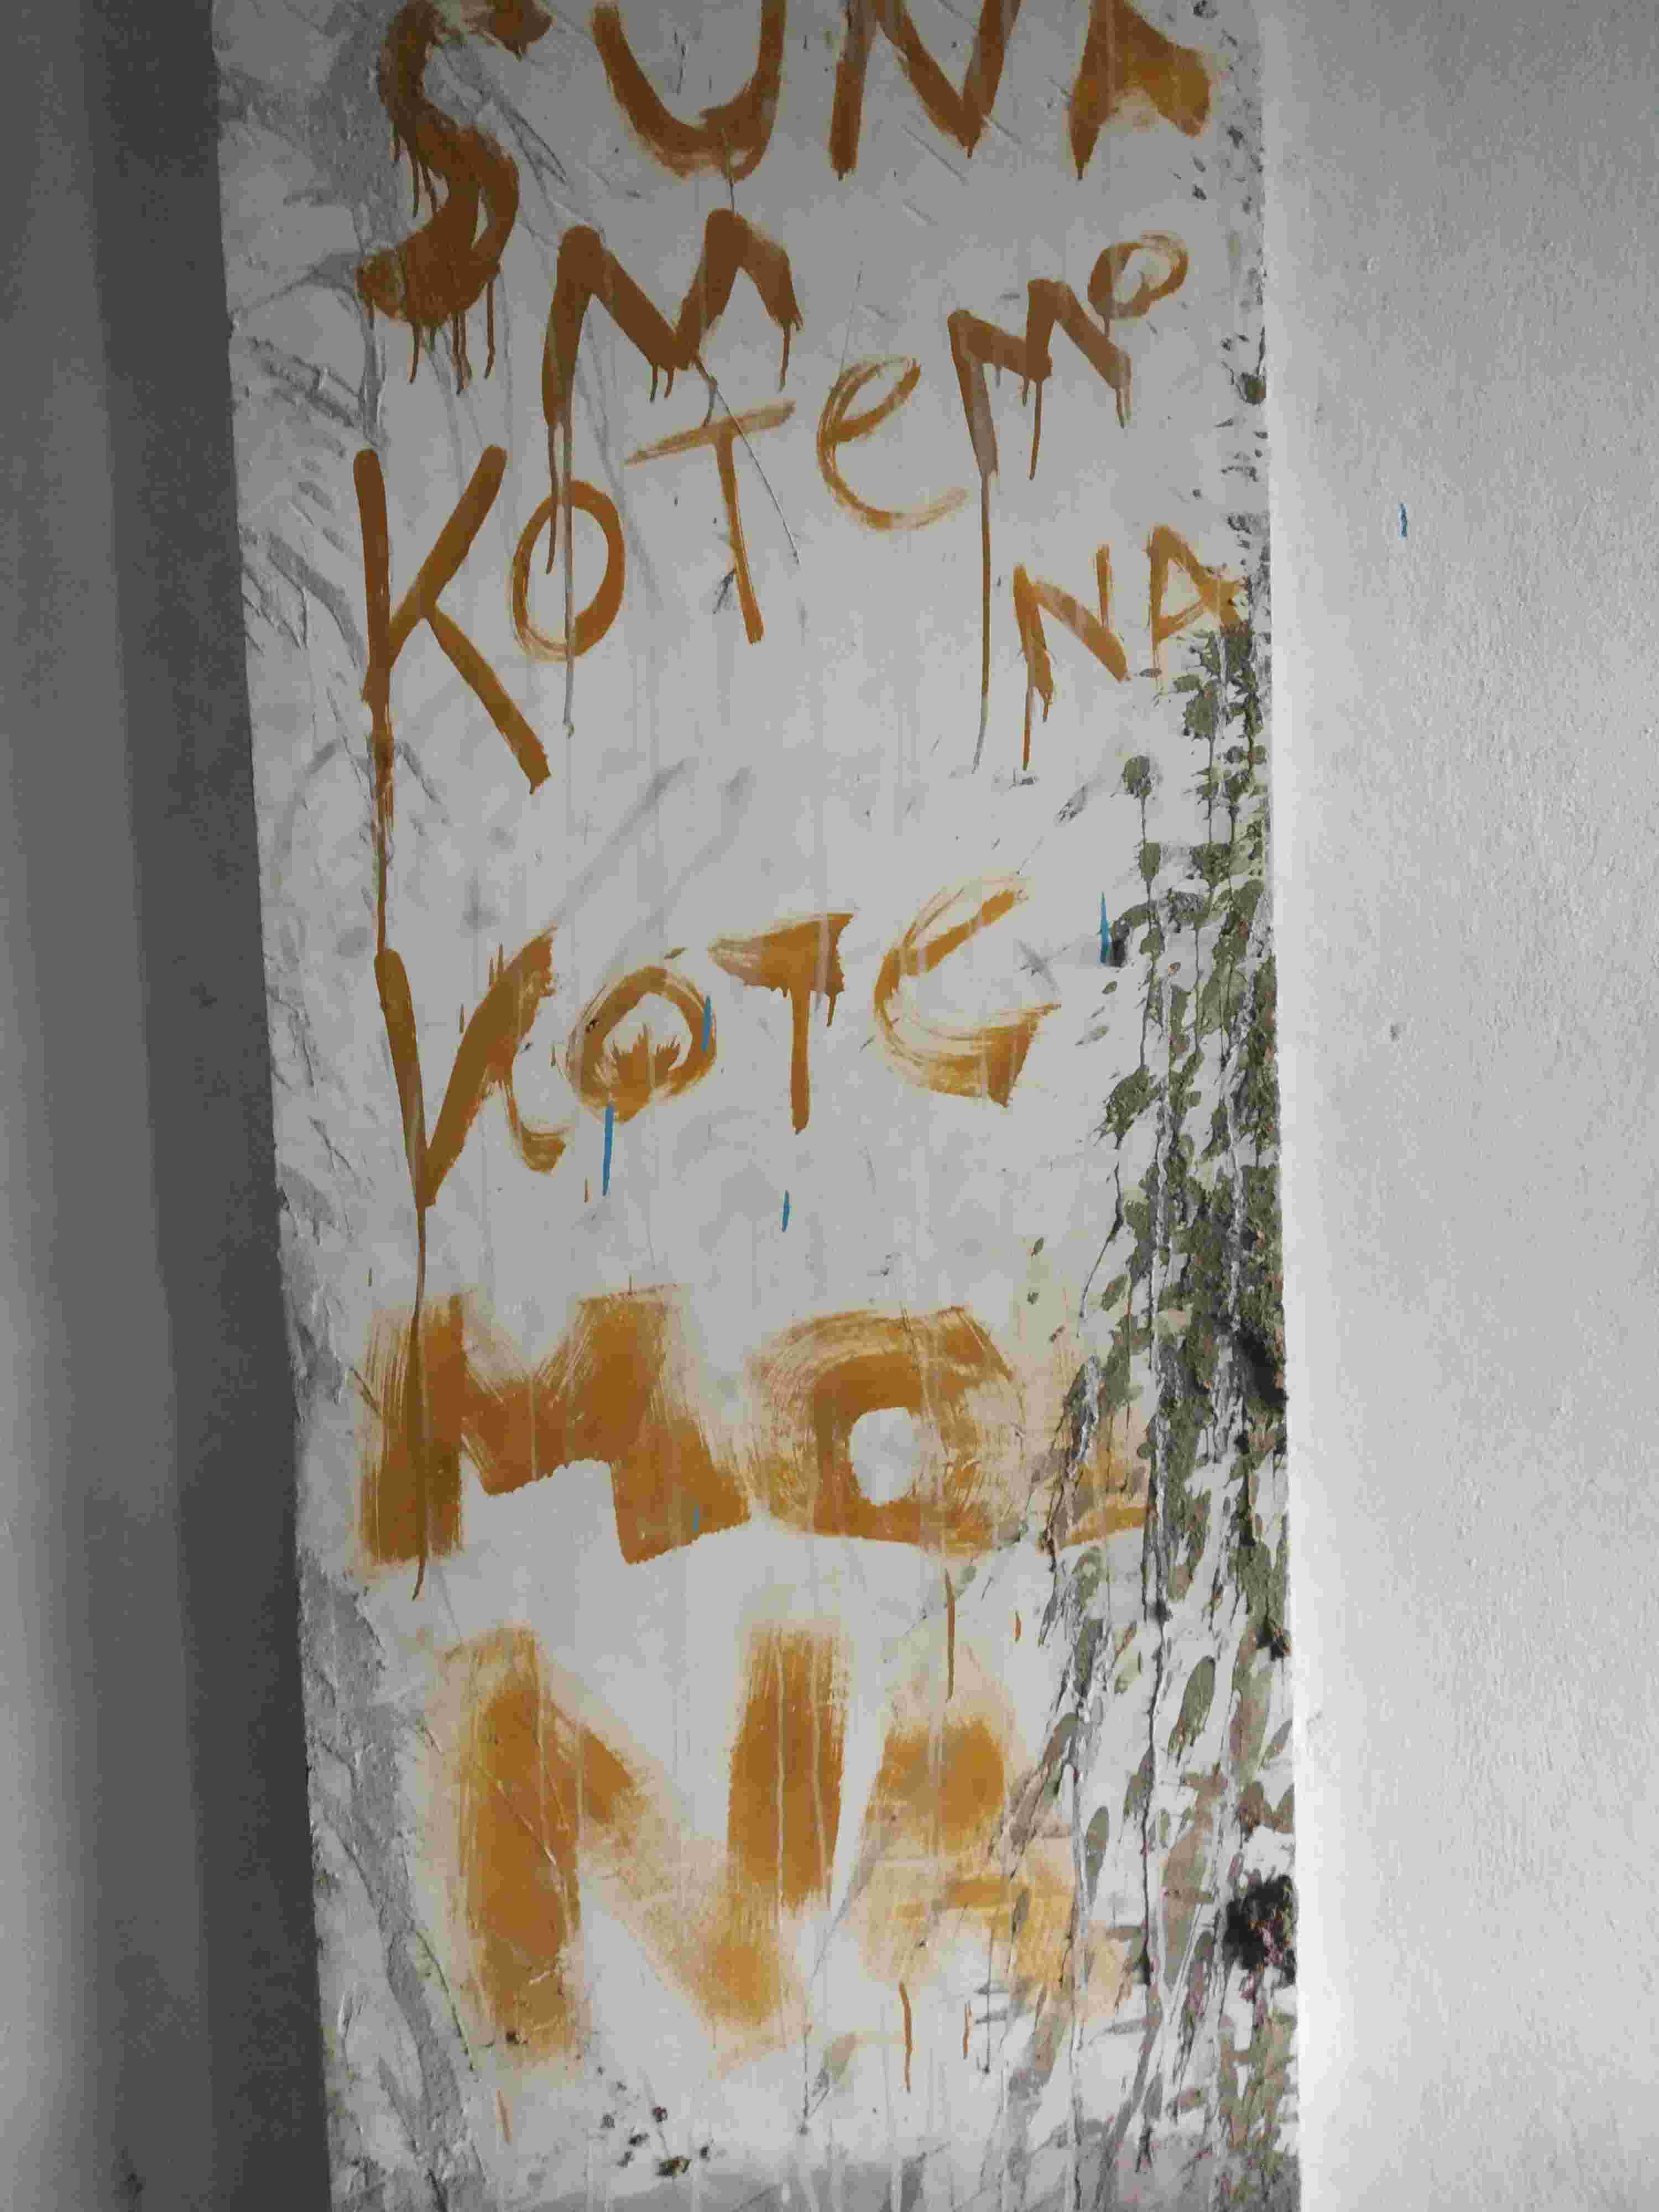 SUNA
M
KOTEMO
NA
KOTE
MO
NA